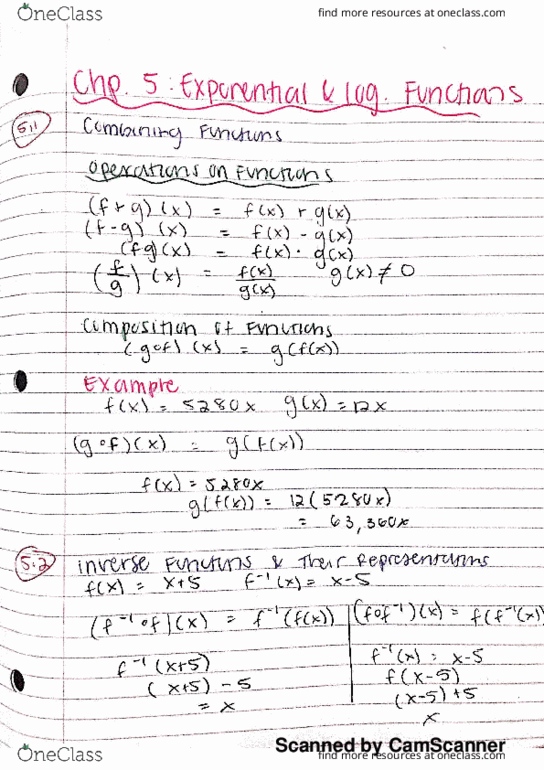 OneClass
find more resources at oneclass.com
Chp. 5: Exponential & log. Functions
5.1
Combining Functions
Operations on Functions
(f+g)(x) = f(x) + g(x)
(f-g)(x) = f(x) - g(x)
(fg)(x) = f(x) · g(x)
(f/g)(x) = f(x)/g(x) g(x) ≠ 0
Composition of Functions
(g∘f)(x) = g(f(x))
Example
f(x) = 5280x g(x) = 12x
(g∘f)(x) = g(f(x))
f(x) = 5280x
g(f(x)) = 12(5280x)
= 63,360x
5.2
Inverse Functions & Their Representations
f(x) = x+5 f⁻¹(x) = x-5
(f⁻¹∘f)(x) = f⁻¹(f(x)) (f∘f⁻¹)(x) = f(f⁻¹(x)
f⁻¹(x+5) f⁻¹(x) = x-5
(x+5) - 5 f(x-5)
= x (x-5)+5
x
Scanned by CamScanner
OneClass
find more resources at oneclass.com